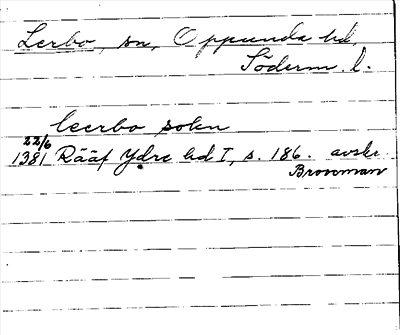 Lerbo, sn, Oppunda hd,
Söderm. l.
leerbo sokn
22/6
1381 Rääf Ydre hd I, s. 186. avskr.
Brocman